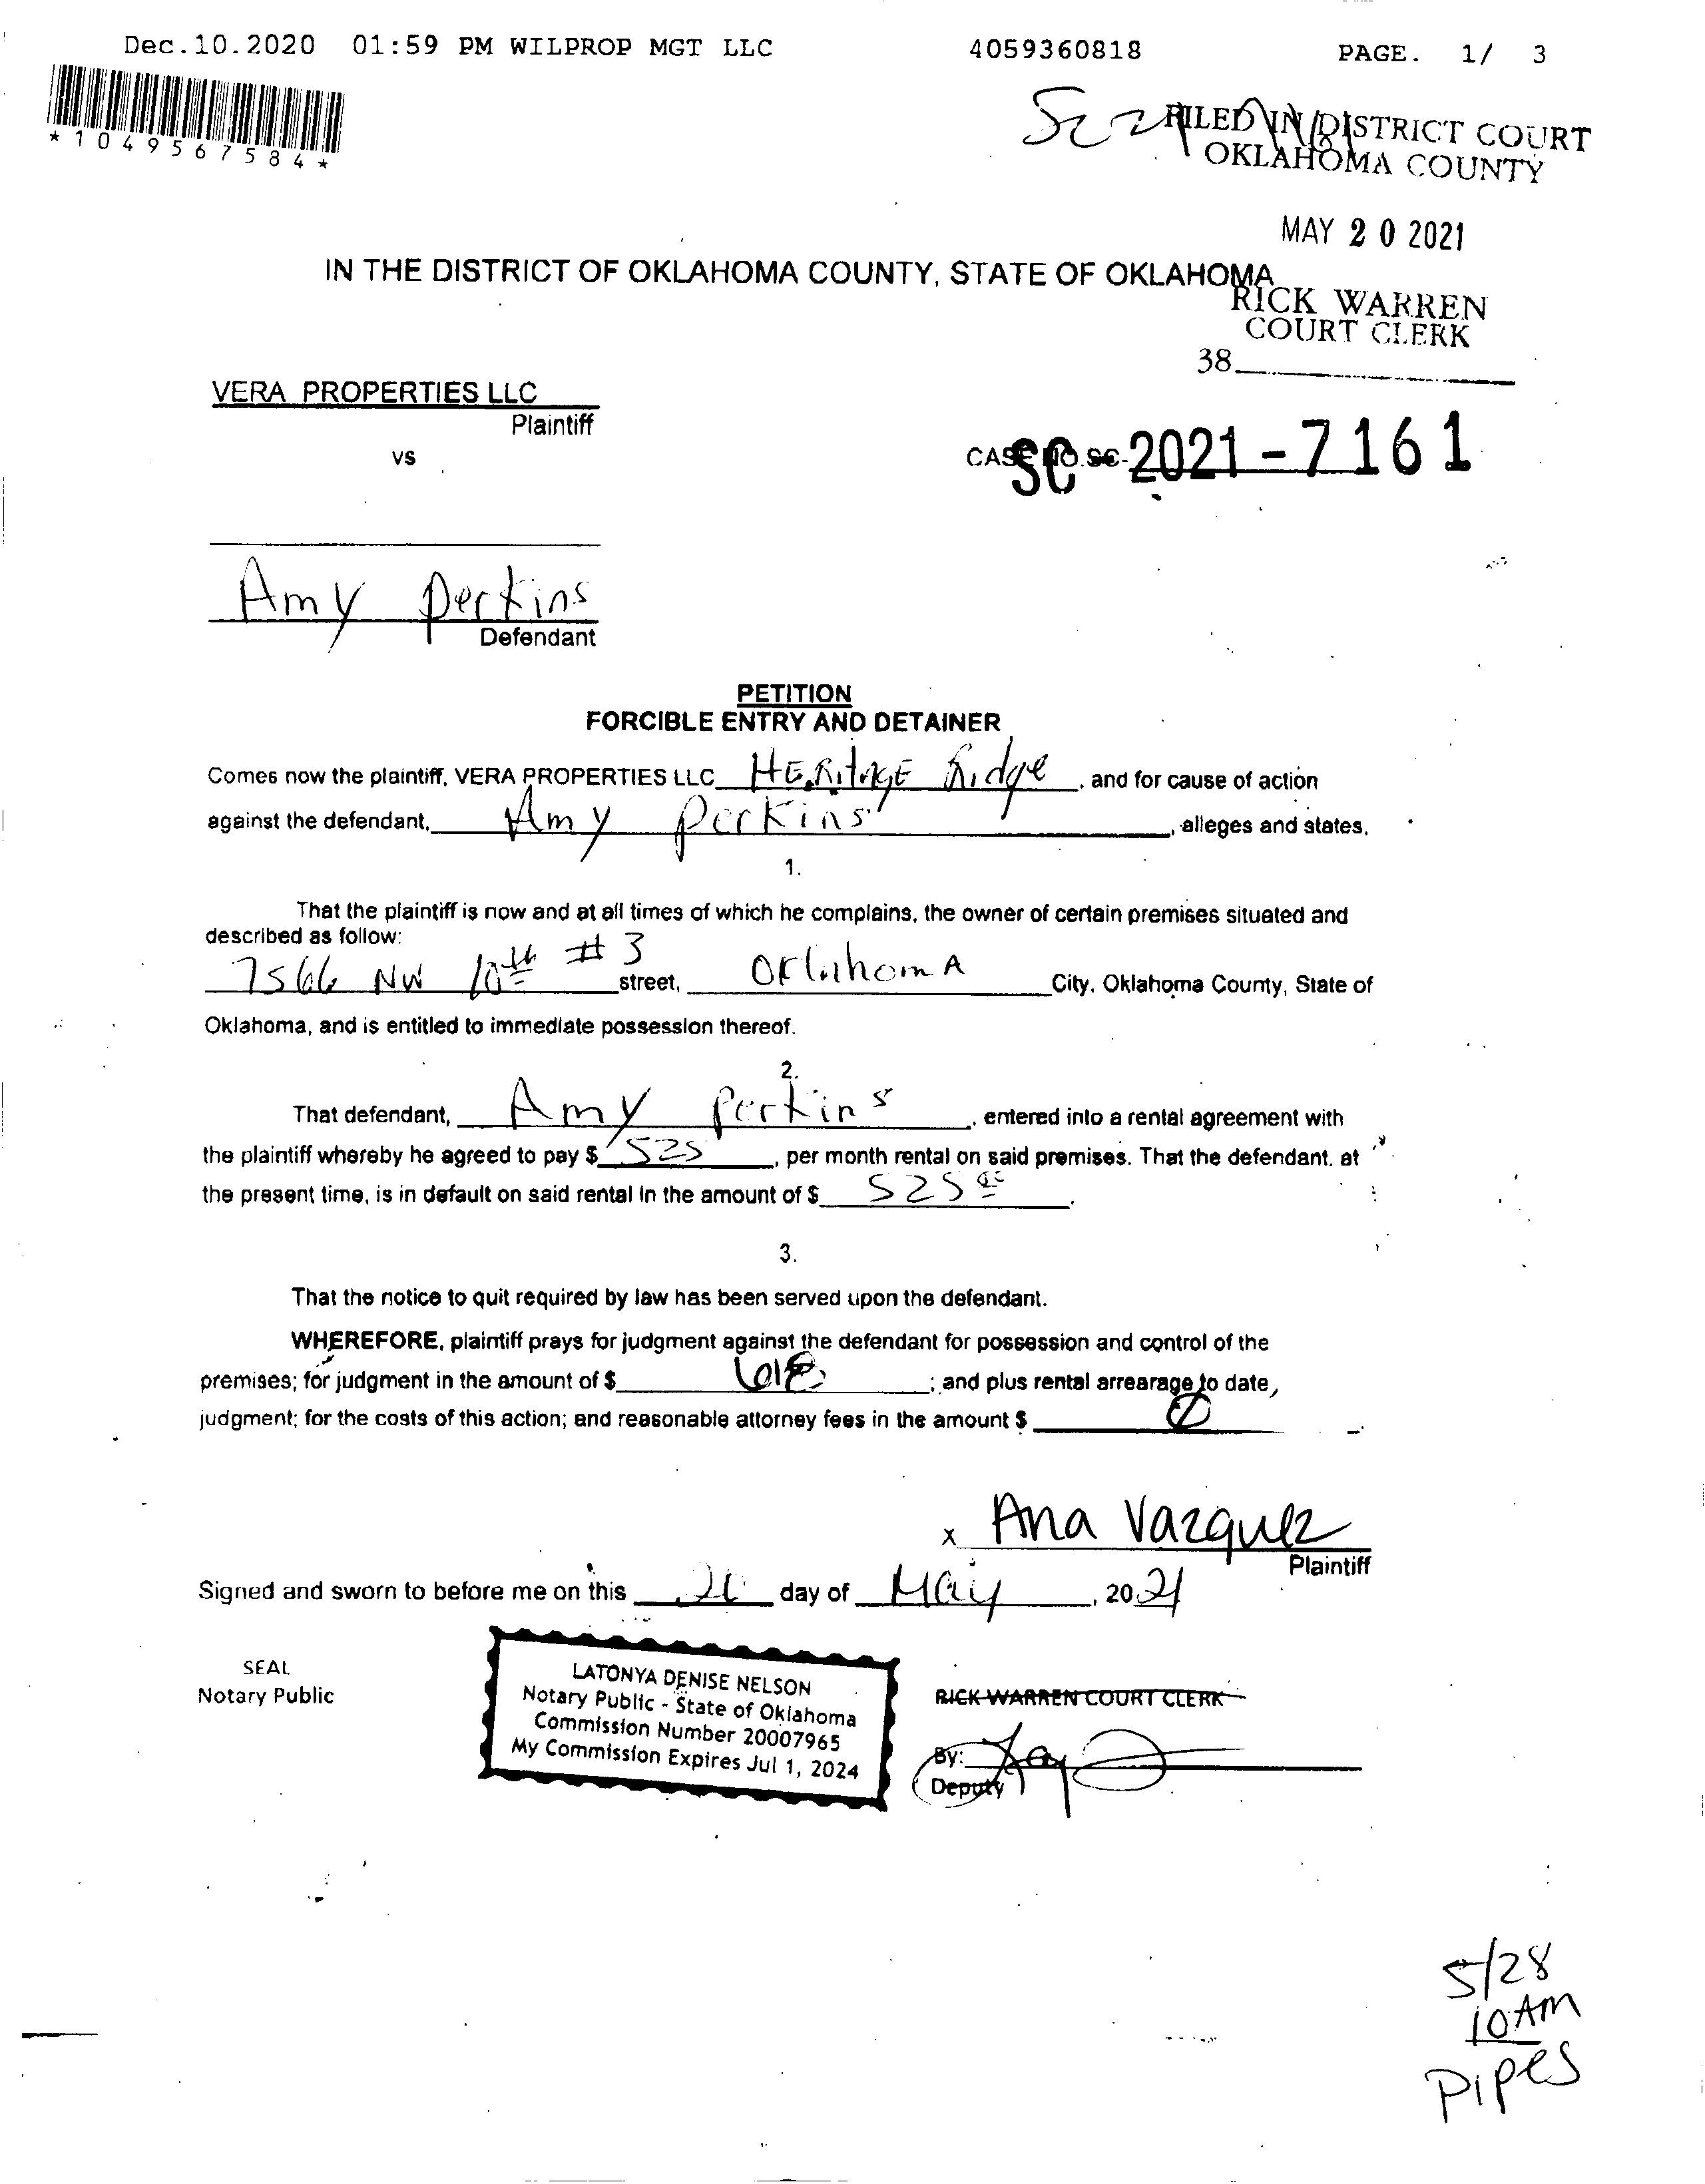 Dec.10.2020 01:59 PM WILPROP MGT LLC 4059360818 PAGE. 1/ 3
*1049567584*
FILED IN DISTRICT COURT
OKLAHOMA COUNTY
MAY 20 2021
IN THE DISTRICT OF OKLAHOMA COUNTY, STATE OF OKLAHOMA
RICK WARREN
COURT CLERK
38
VERA PROPERTIES LLC
Plaintiff
vs
CASE NO. SC-
SC-2021-7161
Amy Perkins
Defendant
PETITION
FORCIBLE ENTRY AND DETAINER
Comes now the plaintiff, VERA PROPERTIES LLC HERitAGE Ridge, and for cause of action
against the defendant, Amy Perkins, alleges and states,
1.
That the plaintiff is now and at all times of which he complains, the owner of certain premises situated and
described as follow:
7566 NW 10th #3 street, OklahomA City, Oklahoma County, State of
Oklahoma, and is entitled to immediate possession thereof.
2.
That defendant, Amy Perkins, entered into a rental agreement with
the plaintiff whereby he agreed to pay $ 525, per month rental on said premises. That the defendant, at
the present time, is in default on said rental in the amount of $ 525.
3.
That the notice to quit required by law has been served upon the defendant.
WHEREFORE, plaintiff prays for judgment against the defendant for possession and control of the
premises; for judgment in the amount of $ ; and plus rental arrearage to date,
judgment; for the costs of this action; and reasonable attorney fees in the amount $
x Ana Vazquez
Plaintiff
Signed and sworn to before me on this day of May, 2021
SEAL
Notary Public
LATONYA DENISE NELSON
Notary Public - State of Oklahoma
Commission Number 20007965
My Commission Expires Jul 1, 2024
RICK WARREN COURT CLERK
By:
Deputy
5/28
10 AM
Pipes